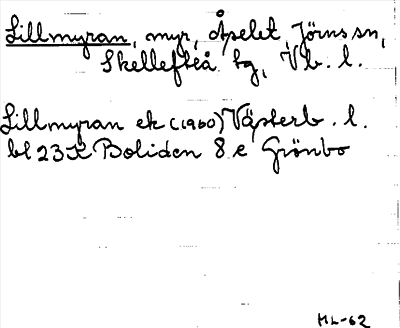 Lillmyran, myr, Åpselet, Jörns sn,
Skellefteå tg, Vb. l.
Lillmyran ek (1960) Västerb. l.
bl 23 K Boliden 8 e Grönbo
ML-62